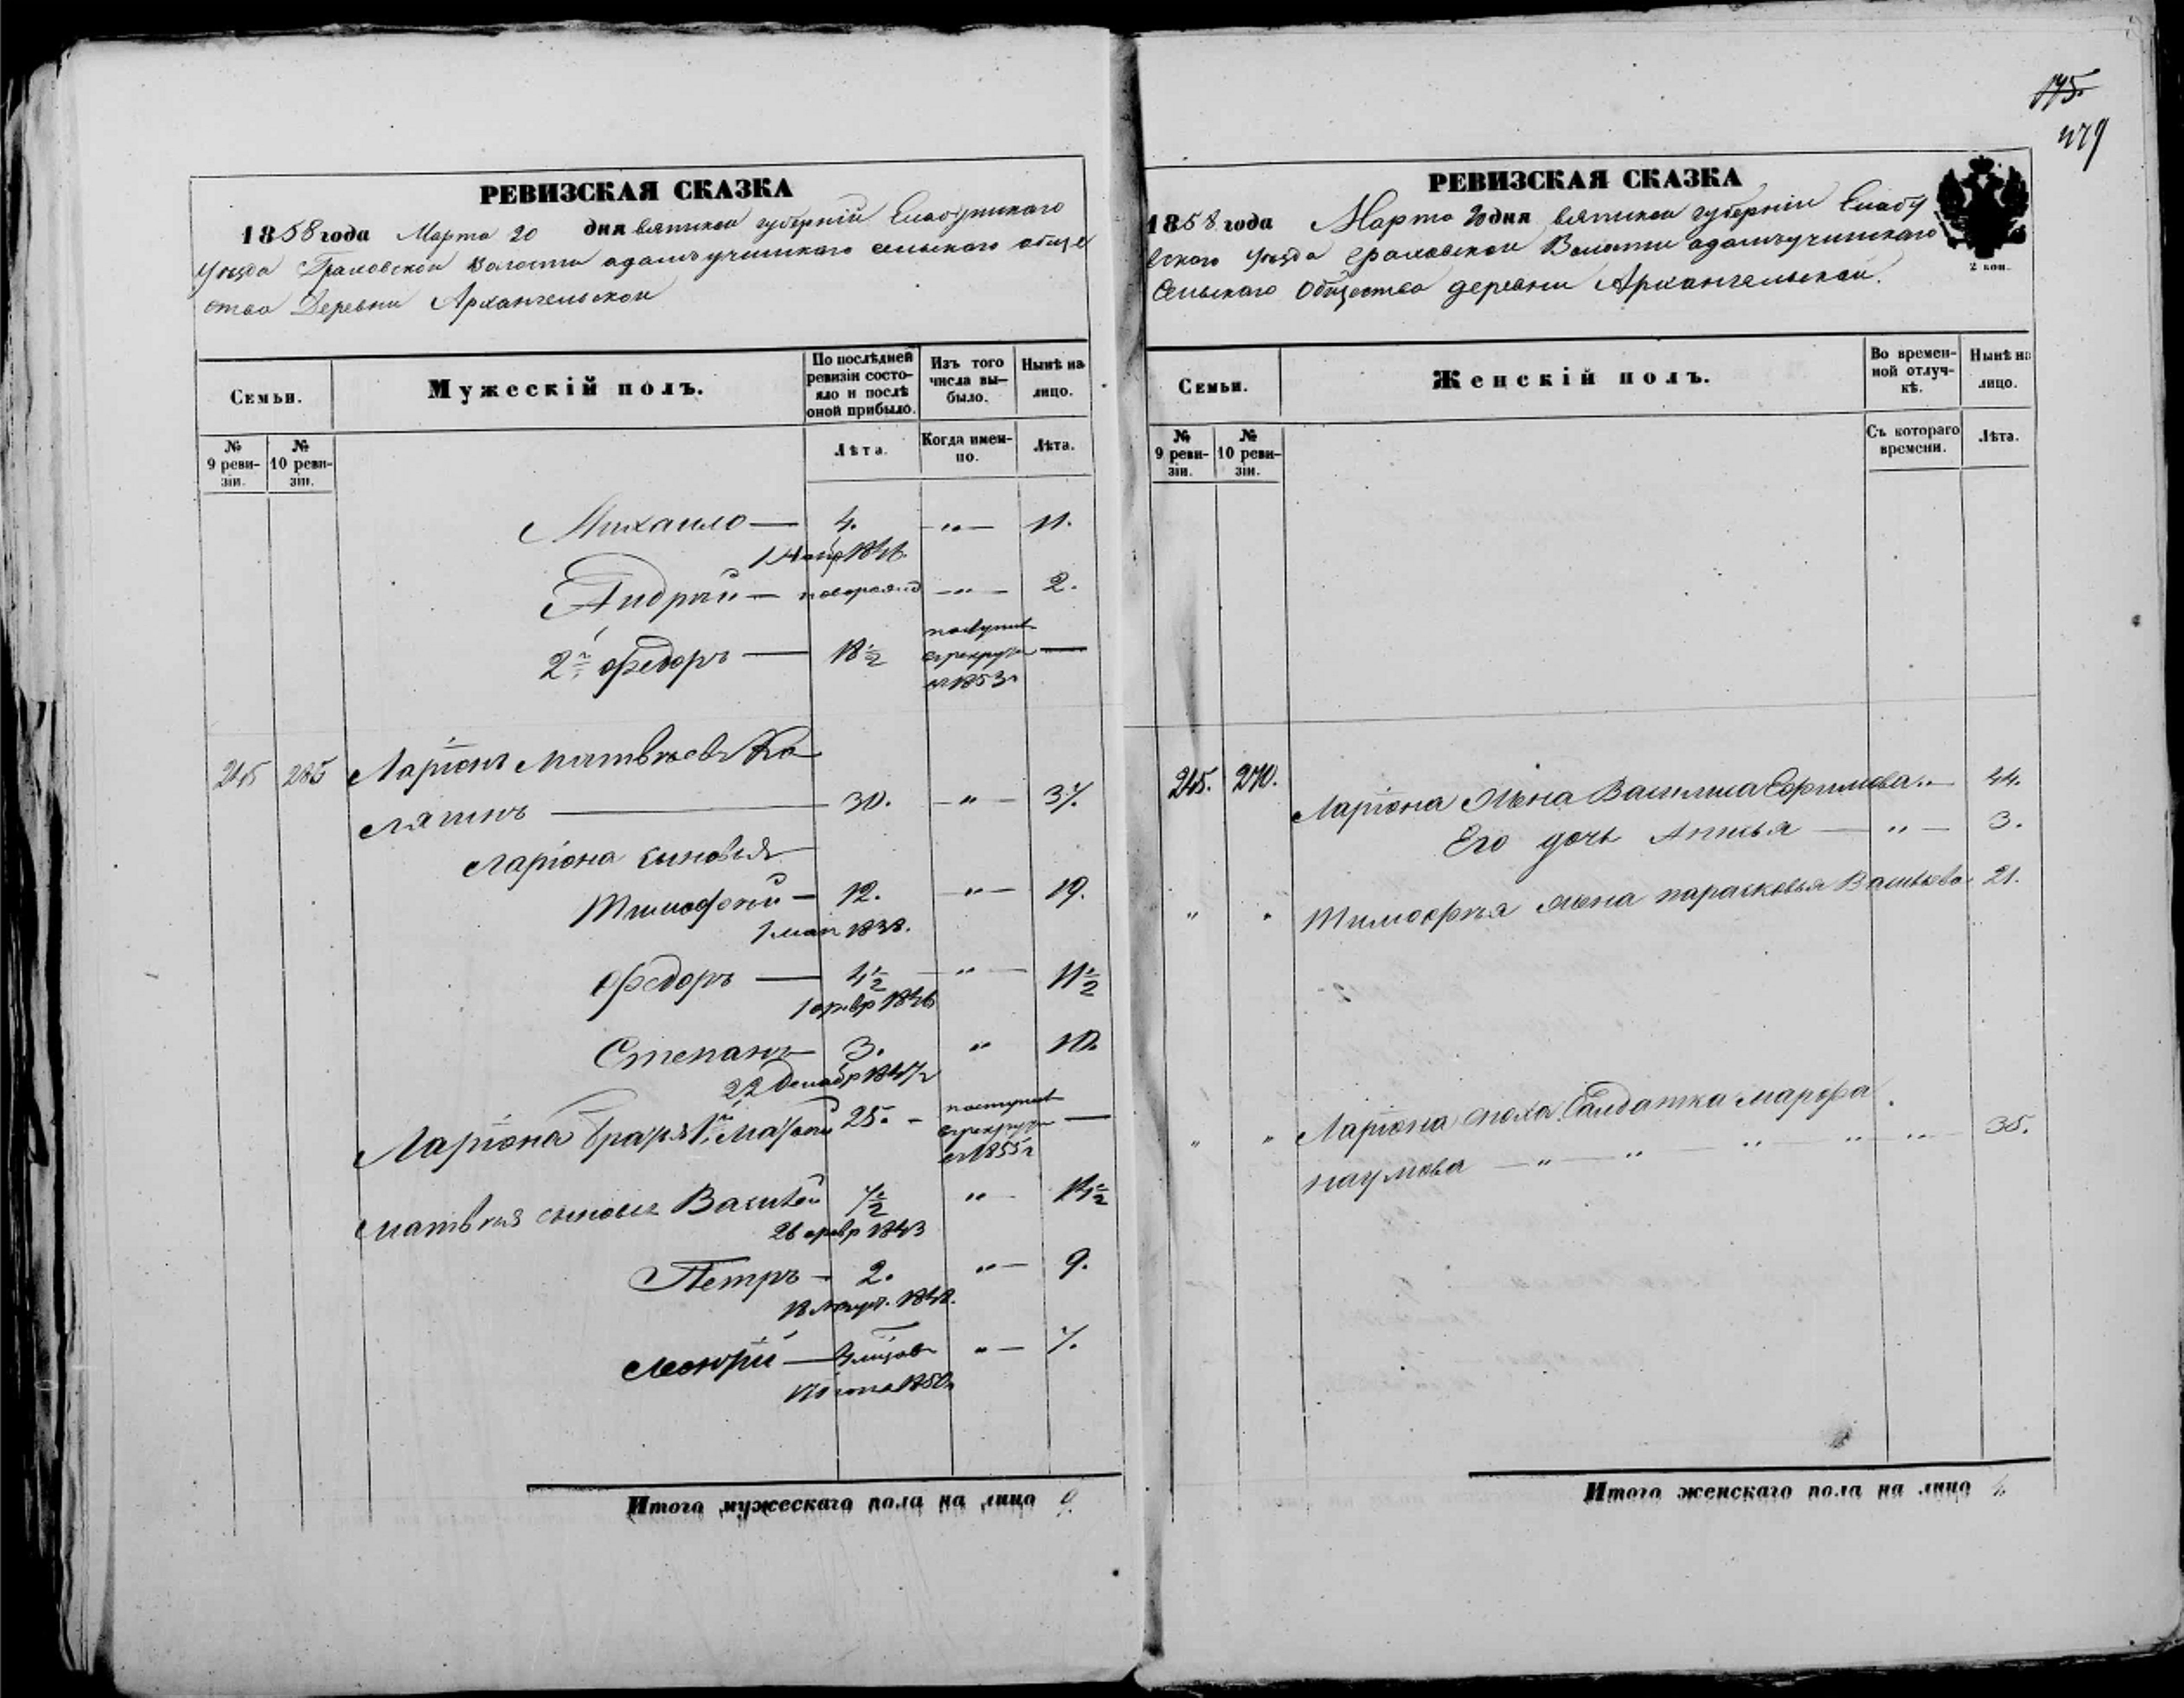 175.
479
РЕВИЗСКАЯ СКАЗКА
1858 года Марта 20 дня вятской губернiи Елабужскаго
уѣзда Граховской волости адамъучинскаго сельскаго обще
ства Деревни Архангельской
Семьи.
Мужескій полъ.
По послѣдней ревизіи состояло и послѣ оной прибыло.
Изъ того числа выбыло.
Нынѣ на лицо.
№ 9 ревизіи.
№ 10 ревизіи.
Лѣта.
Когда именно.
Лѣта.
Михаило — 4. — " — 11.
Андрей — новорожд — " — 2.
2й Федоръ — 18½ поступил в рекруты в 1853 —
245 285 Ларiонъ Матвѣевъ Ка
лягинъ — 30. — " — 37.
Ларiона сыновья
Тимофей — 12. — " — 19.
1 мая 1838.
Федоръ — 4½ — " — 11½
1 февр 1846
Степанъ 3. " 10.
22 Декабр 1847
Ларiона братья 1й 25. - поступил в рекруты в 1855 —
Матвея сыновья 7½ " 14½
26 февр 1843
Петръ — 2. " — 9.
18 1848.
— " — 7.
1850
Итого мужескаго пола на лицо 9.
РЕВИЗСКАЯ СКАЗКА
1858 года Марта 20 дня вятской губернiи Елабу
жскаго уѣзда Граховской Волости адамъучинскаго
Сельскаго Общества деревни Архангельской.
2 коп.
Семьи.
Женскій полъ.
Во временной отлучкѣ.
Нынѣ на лицо.
№ 9 ревизіи.
№ 10 ревизіи.
Съ котораго времени.
Лѣта.
245. 270. Ларiона жена Василиса Ефимова " — 44.
Его дочь — " — 3.
" " Тимофея жена парасковья Васильева 21.
" " Ларiона сноха Салдатка марфа
наумова — " — " — " — " — " — 35.
Итого женскаго пола на лицо 4.